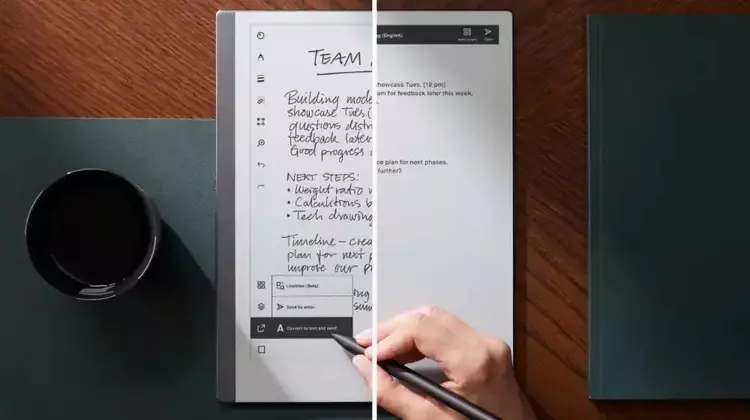 TEAM
Building mode
showcase Tues.(
questions distri
feedback later
Good progress
NEXT STEPS:
• Weight ratio
• Calculations b
• Tech drawing
Timeline — crea
plan for next p
improve our p
LiveView (Beta)
Send by email
Convert to text and send
(English)
howcase Tues. (12 pm)
am for feedback later this week.
ce plan for next phases.
further?